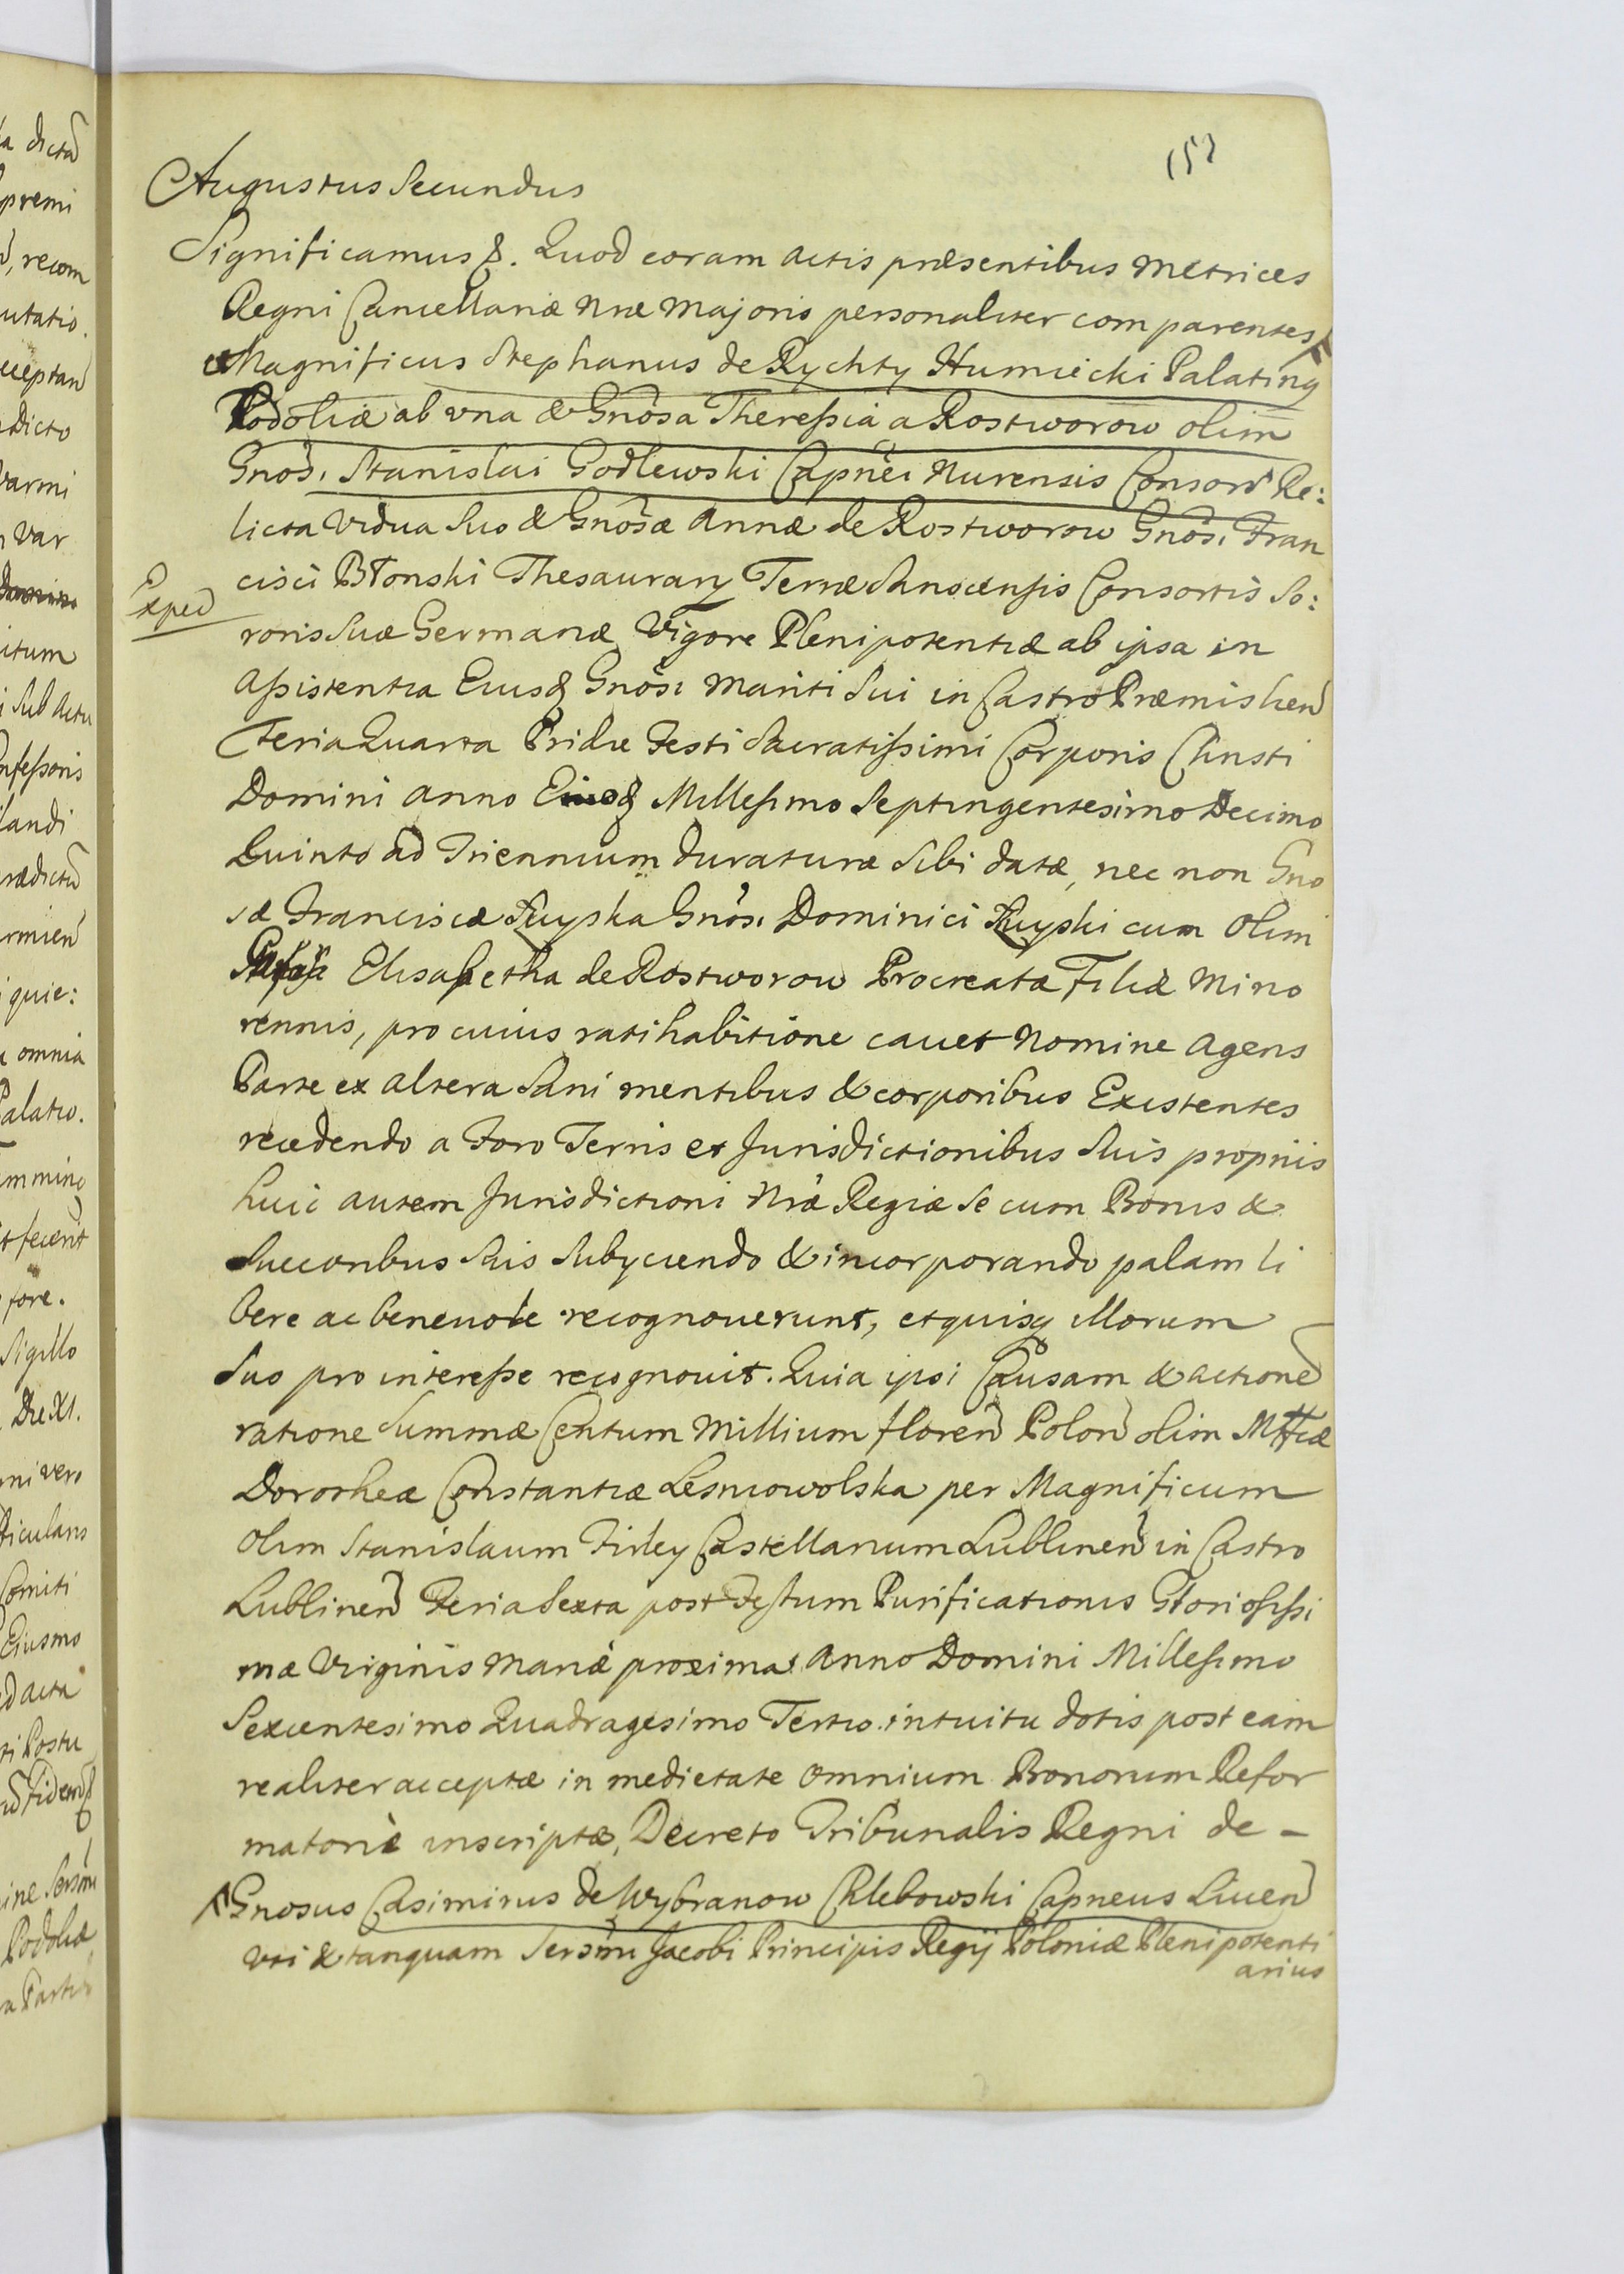 152
Augustus Secundus
Significamus &. Quod coram actis præsentibus Metrices
Regni Cancellariæ Nræ Majoris personaliter comparentes
et Magnificus Stephanus de Rychty Humiecki Palatinq
Podoliæ ab vna & Gnosa Theressia a Rostworow olim
Gnosi Stanislai Godlewski Capnei Nurensis Consors Re:
licta Vidua Suo & Gnosæ Annæ de Rostworow Gnosi Fran
cisci Błonski Thesaurary Terræ Sanocensis Consortis So:
Exped
roris Suæ Germanæ Vigore Plenipotentiæ ab ipsa in
assistentia Eiusq Gnosi Mariti Sui in Castro Præmislien
Feria Quarta Pridie Festi Sacratissimi Corporis Christi
Domini Anno Millesimo Septingentesimo Decimo
Quinto ad Triennium duraturæ Sibi datæ, nec non Gno
sæ Franciscæ Gnosi Dominici cum Olim
Elisabetha de Rostworow Procreatæ Filiæ Mino
rennis, pro cuius ratihabitione cauet Nomine Agens
Parte ex altera Sani mentibus & corporibus Existentes
recedendo a Foro Terris et Jurisdictionibus Suis proprijs
huic autem Jurisdictioni Nræ Regiæ Se cum Bonis &
Succoribus Suis Subyciendo & incorporando palam li
bere ac beneuole recognouerunt, et quisq illorum
Suo pro interesse recognouit. Quia ipsi Causam & actione
ratione Summæ Centum Millium floren Polon olim Mfficæ
Dorotheæ Constantiæ Lesniowolska per Magnificum
Olim Stanislaum Firley Castellanum Lublinen in Castro
Lublinen Feria Sexta post Festum Purificationis Gloriosissi
mæ Virginis Mariæ proxima Anno Domini Millesimo
Sexcentesimo Quadragesimo Tertio intuitu dotis post eam
realiter acceptæ in medietate omnium Bonorum Refor
matorie inscriptæ, Decreto Tribunalis Regni de -
Gnosus Casimirus de Wybranow Chlebowski Capneus Liuen
vti & tanquam Sersmi Jacobi Principis Regij Poloniæ Plenipotenti
arius